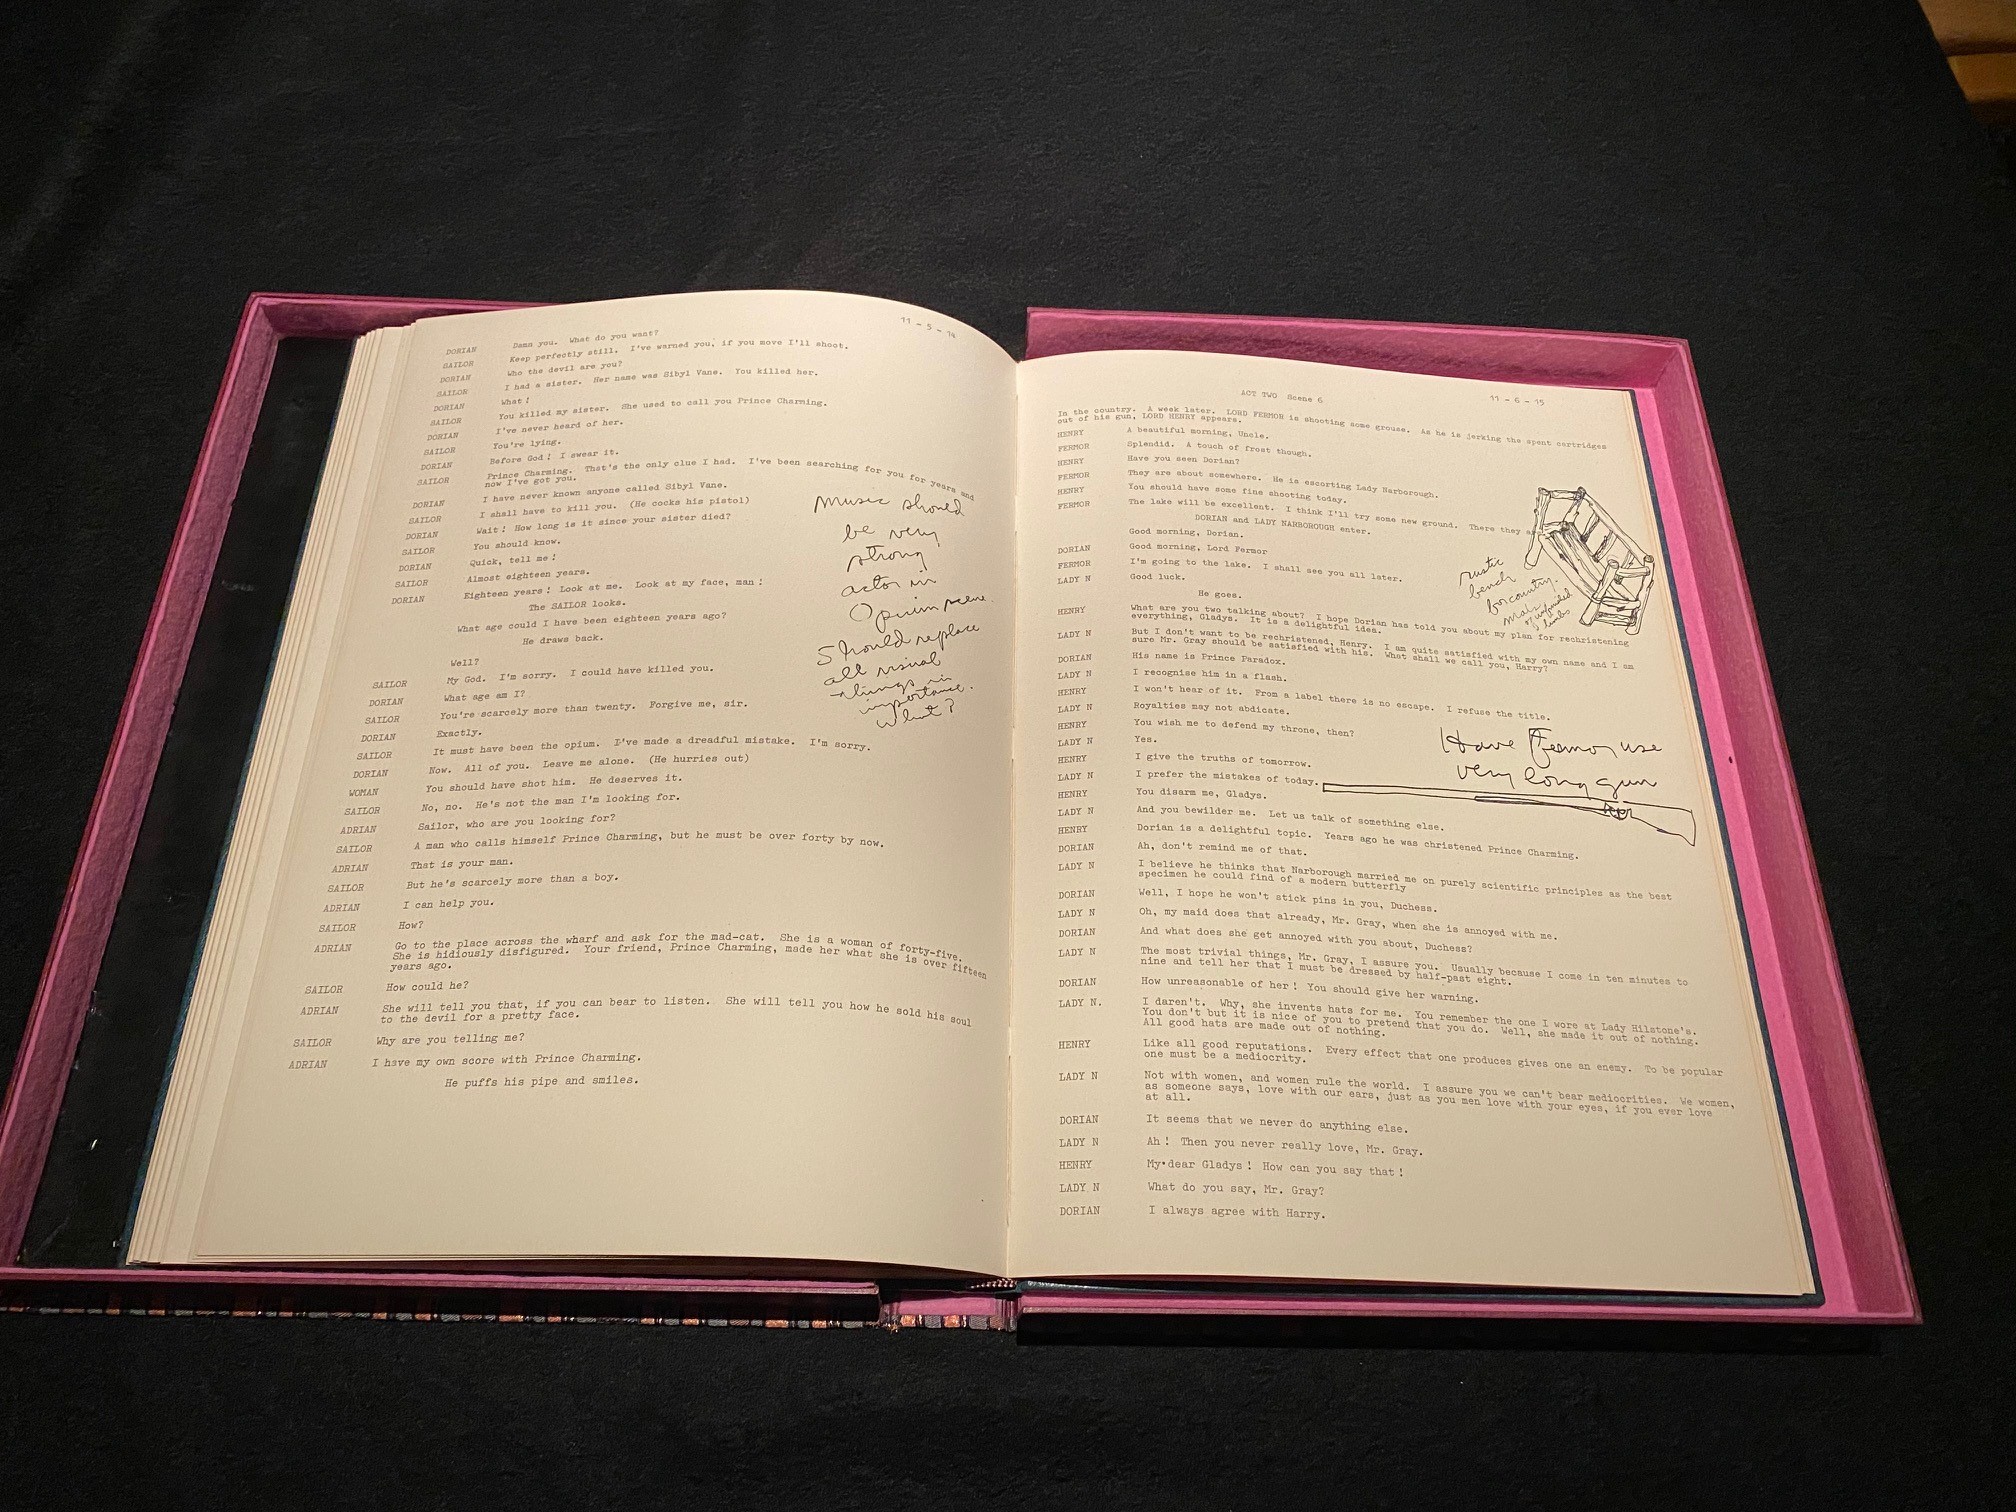 11 - 5 - 14
DORIAN Damn you. What do you want?
SAILOR Keep perfectly still. I've warned you, if you move I'll shoot.
DORIAN Who the devil are you?
SAILOR I had a sister. Her name was Sibyl Vane. You killed her.
DORIAN What!
SAILOR You killed my sister. She used to call you Prince Charming.
DORIAN I've never heard of her.
SAILOR You're lying.
DORIAN Before God! I swear it.
SAILOR Prince Charming. That's the only clue I had. I've been searching for you for years and
now I've got you.
DORIAN I have never known anyone called Sibyl Vane.
SAILOR I shall have to kill you. (He cocks his pistol)
DORIAN Wait! How long is it since your sister died?
SAILOR You should know.
DORIAN Quick, tell me!
SAILOR Almost eighteen years.
DORIAN Eighteen years! Look at me. Look at my face, man!
The SAILOR looks.
What age could I have been eighteen years ago?
He draws back.
Well?
SAILOR My God. I'm sorry. I could have killed you.
DORIAN What age am I?
SAILOR You're scarcely more than twenty. Forgive me, sir.
DORIAN Exactly.
SAILOR It must have been the opium. I've made a dreadful mistake. I'm sorry.
DORIAN Now. All of you. Leave me alone. (He hurries out)
WOMAN You should have shot him. He deserves it.
SAILOR No, no. He's not the man I'm looking for.
ADRIAN Sailor, who are you looking for?
SAILOR A man who calls himself Prince Charming, but he must be over forty by now.
ADRIAN That is your man.
SAILOR But he's scarcely more than a boy.
ADRIAN I can help you.
SAILOR How?
ADRIAN Go to the place across the wharf and ask for the mad-cat. She is a woman of forty-five.
She is hidiously disfigured. Your friend, Prince Charming, made her what she is over fifteen
years ago.
SAILOR How could he?
ADRIAN She will tell you that, if you can bear to listen. She will tell you how he sold his soul
to the devil for a pretty face.
SAILOR Why are you telling me?
ADRIAN I have my own score with Prince Charming.
He puffs his pipe and smiles.
Music should
be very
strong
actor in
Opium scene
Should replace
all visual
things in
importance.
What?
ACT TWO Scene 6 11 - 6 - 15
In the country. A week later. LORD FERMOR is shooting some grouse. As he is jerking the spent cartridges
out of his gun, LORD HENRY appears.
HENRY A beautiful morning, Uncle.
FERMOR Splendid. A touch of frost though.
HENRY Have you seen Dorian?
FERMOR They are about somewhere. He is escorting Lady Narborough.
HENRY You should have some fine shooting today.
FERMOR The lake will be excellent. I think I'll try some new ground. There they
DORIAN and LADY NARBOROUGH enter.
Good morning, Dorian.
DORIAN Good morning, Lord Fermor
FERMOR I'm going to the lake. I shall see you all later.
LADY N Good luck.
He goes.
HENRY What are you two talking about? I hope Dorian has told you about my plan for rechristening
everything, Gladys. It is a delightful idea.
LADY N But I don't want to be rechristened, Henry. I am quite satisfied with my own name and I am
sure Mr. Gray should be satisfied with his. What shall we call you, Harry?
DORIAN His name is Prince Paradox.
LADY N I recognise him in a flash.
HENRY I won't hear of it. From a label there is no escape. I refuse the title.
LADY N Royalties may not abdicate.
HENRY You wish me to defend my throne, then?
LADY N Yes.
HENRY I give the truths of tomorrow.
LADY N I prefer the mistakes of today.
HENRY You disarm me, Gladys.
LADY N And you bewilder me. Let us talk of something else.
HENRY Dorian is a delightful topic. Years ago he was christened Prince Charming.
DORIAN Ah, don't remind me of that.
LADY N I believe he thinks that Narborough married me on purely scientific principles as the best
specimen he could find of a modern butterfly
DORIAN Well, I hope he won't stick pins in you, Duchess.
LADY N Oh, my maid does that already, Mr. Gray, when she is annoyed with me.
DORIAN And what does she get annoyed with you about, Duchess?
LADY N The most trivial things, Mr. Gray, I assure you. Usually because I come in ten minutes to
nine and tell her that I must be dressed by half-past eight.
DORIAN How unreasonable of her! You should give her warning.
LADY N. I daren't. Why, she invents hats for me. You remember the one I wore at Lady Hilstone's.
You don't but it is nice of you to pretend that you do. Well, she made it out of nothing.
All good hats are made out of nothing.
HENRY Like all good reputations. Every effect that one produces gives one an enemy. To be popular
one must be a mediocrity.
LADY N Not with women, and women rule the world. I assure you we can't bear mediocrities. We women,
as someone says, love with our ears, just as you men love with your eyes, if you ever love
at all.
DORIAN It seems that we never do anything else.
LADY N Ah! Then you never really love, Mr. Gray.
HENRY My dear Gladys! How can you say that!
LADY N What do you say, Mr. Gray?
DORIAN I always agree with Harry.
rustic
bench
for country.
limbs
Have Fermor use
very long gun